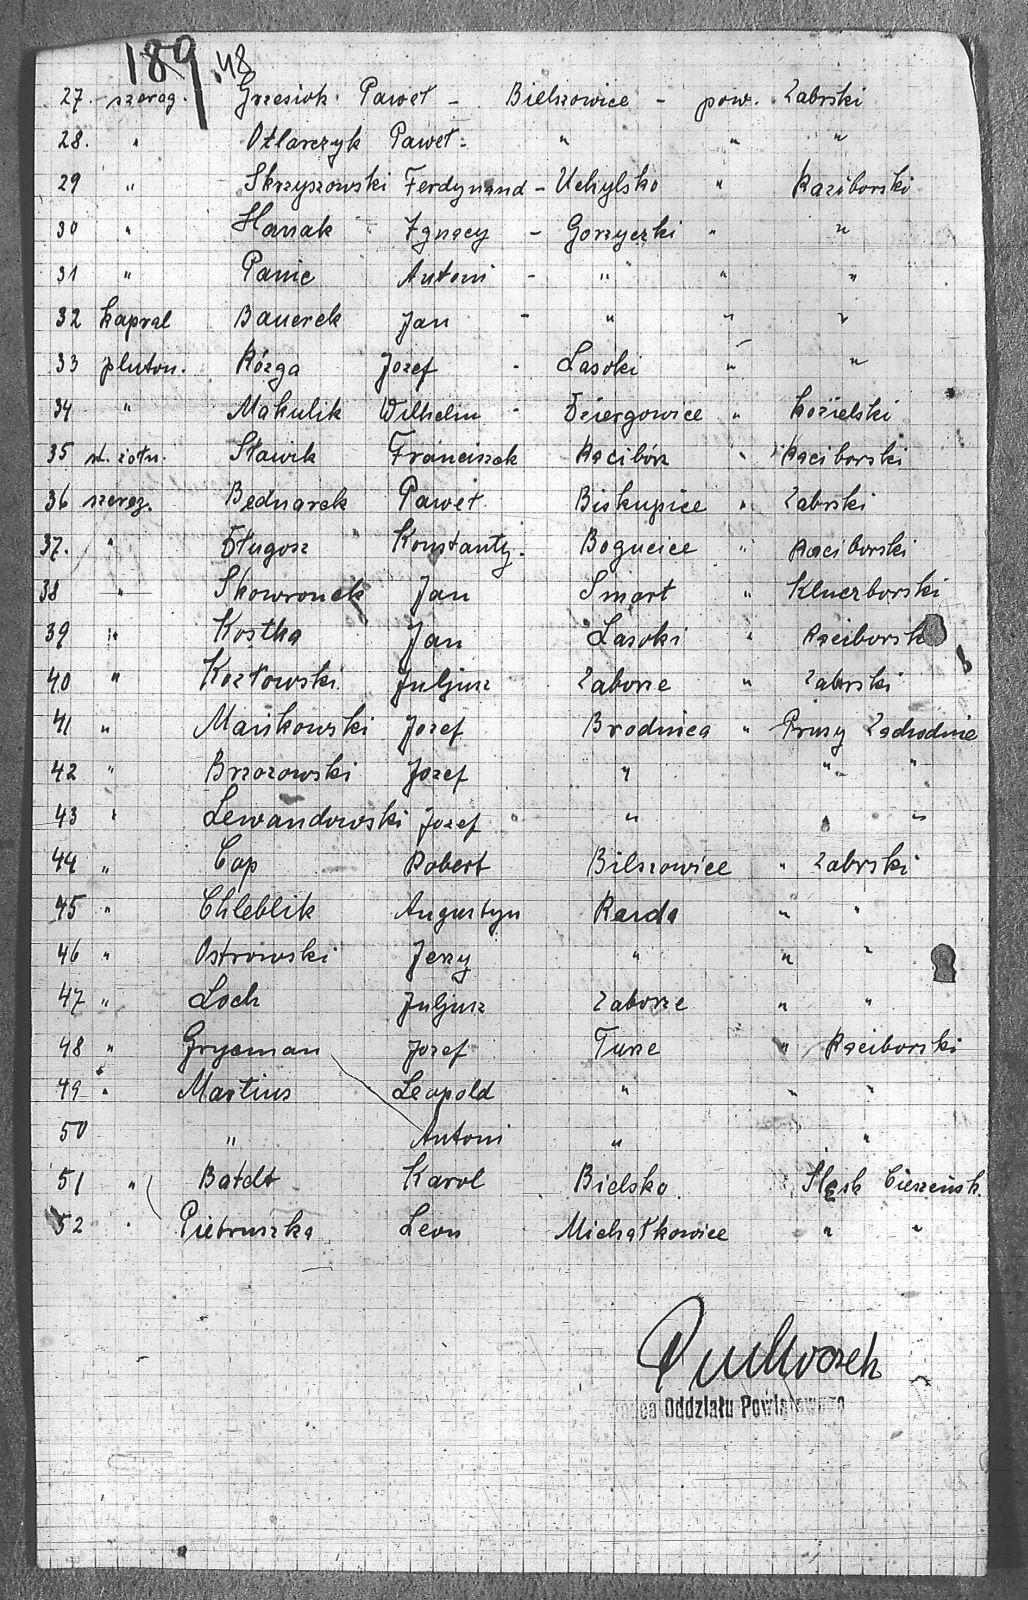 189 48
27. szereg. Grzesiok Paweł - Bielszowice - pow. Zabrski
28. " Otlarczyk Paweł - " " "
29 " Skrzyszowski Ferdynand - Uchylsko " Raciborski
30 " Hanak Ignacy - Gorzyczki " "
31 " Panic Antoni - " " "
32 kapral Bauerek Jan - " " "
33 pluton. Rózga Jozef - Lasoki " "
34 " Makulik Wilhelm - Dziergowice " Kozielski
35 st. żołn. Sławik Franciszek Racibórz " Raciborski
36 szereg. Bednarek Paweł Biskupice " Zabrski
37. " Długosz Konstanty. Bogucice " Raciborski
38 " Skowronek Jan Smart " Kluczborski
39 " Kostka Jan Lasoki " Raciborski
40 " Kozłowski Juljusz Zaborze " Zabrski
41 " Mańkowski Jozef Brodnica " Prusy Zachodnie
42 " Brzozowski Jozef " " "
43 " Lewandowski Jozef " " "
44 " Cop Robert Bilszowice " Zabrski
45 " Chleblik Augustyn Ruda " "
46 " Ostrowski Jerzy " " "
47 " Loch Juljusz Zaborze " "
48 " Grycman Jozef Turze " Raciborski
49 " Martius Leopold " " "
50 " Antoni " "
51 " Bałdt Karol Bielsko Sląsk Cieszeńsk.
52 " Pietruszka Leon Michałkowice " "
Oddziału Powiatowego